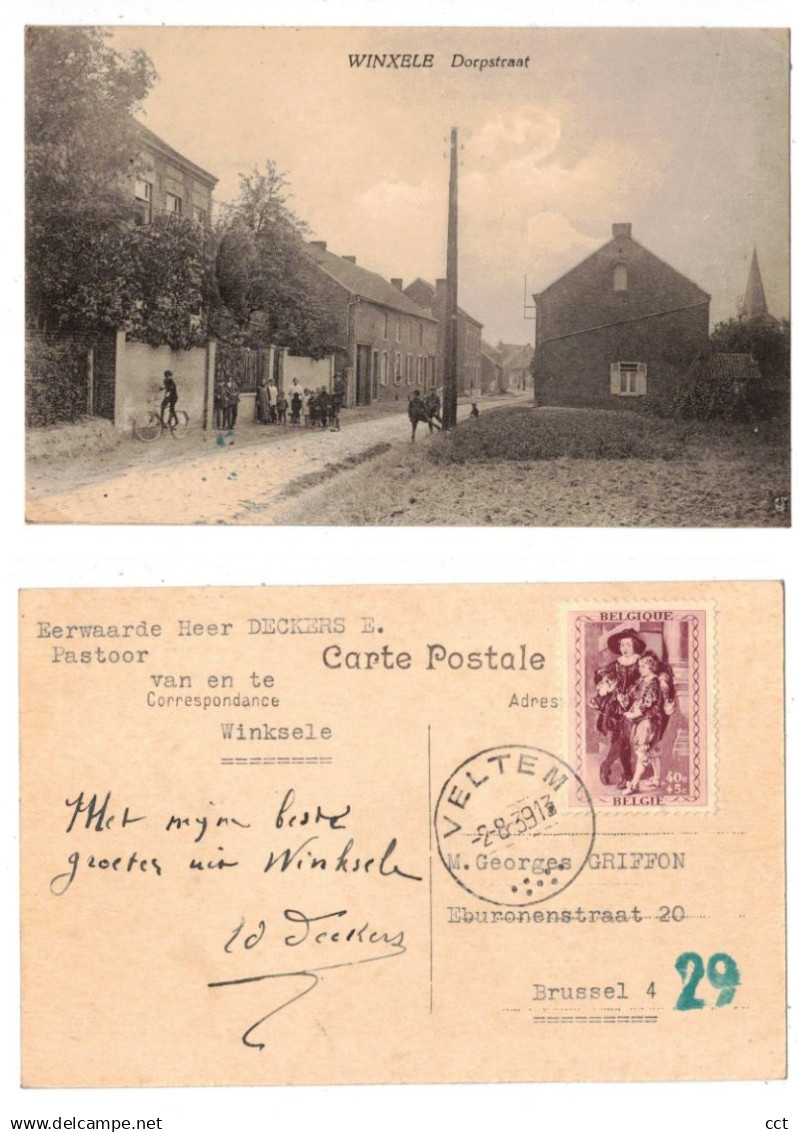 WINXELE Dorpstraat
Eerwaarde Heer DECKERS E.
Pastoor
Carte Postale
van en te
Correspondance
Adres
Winksele
BELGIQUE
40c
+5c
BELGIE
VELTEM
-2-8-39 13
Met mijn beste
groeten uit Winksele
Ed Deckers
M. Georges GRIFFON
Eburonenstraat 20
Brussel 4
29
www.delcampe.net
cct